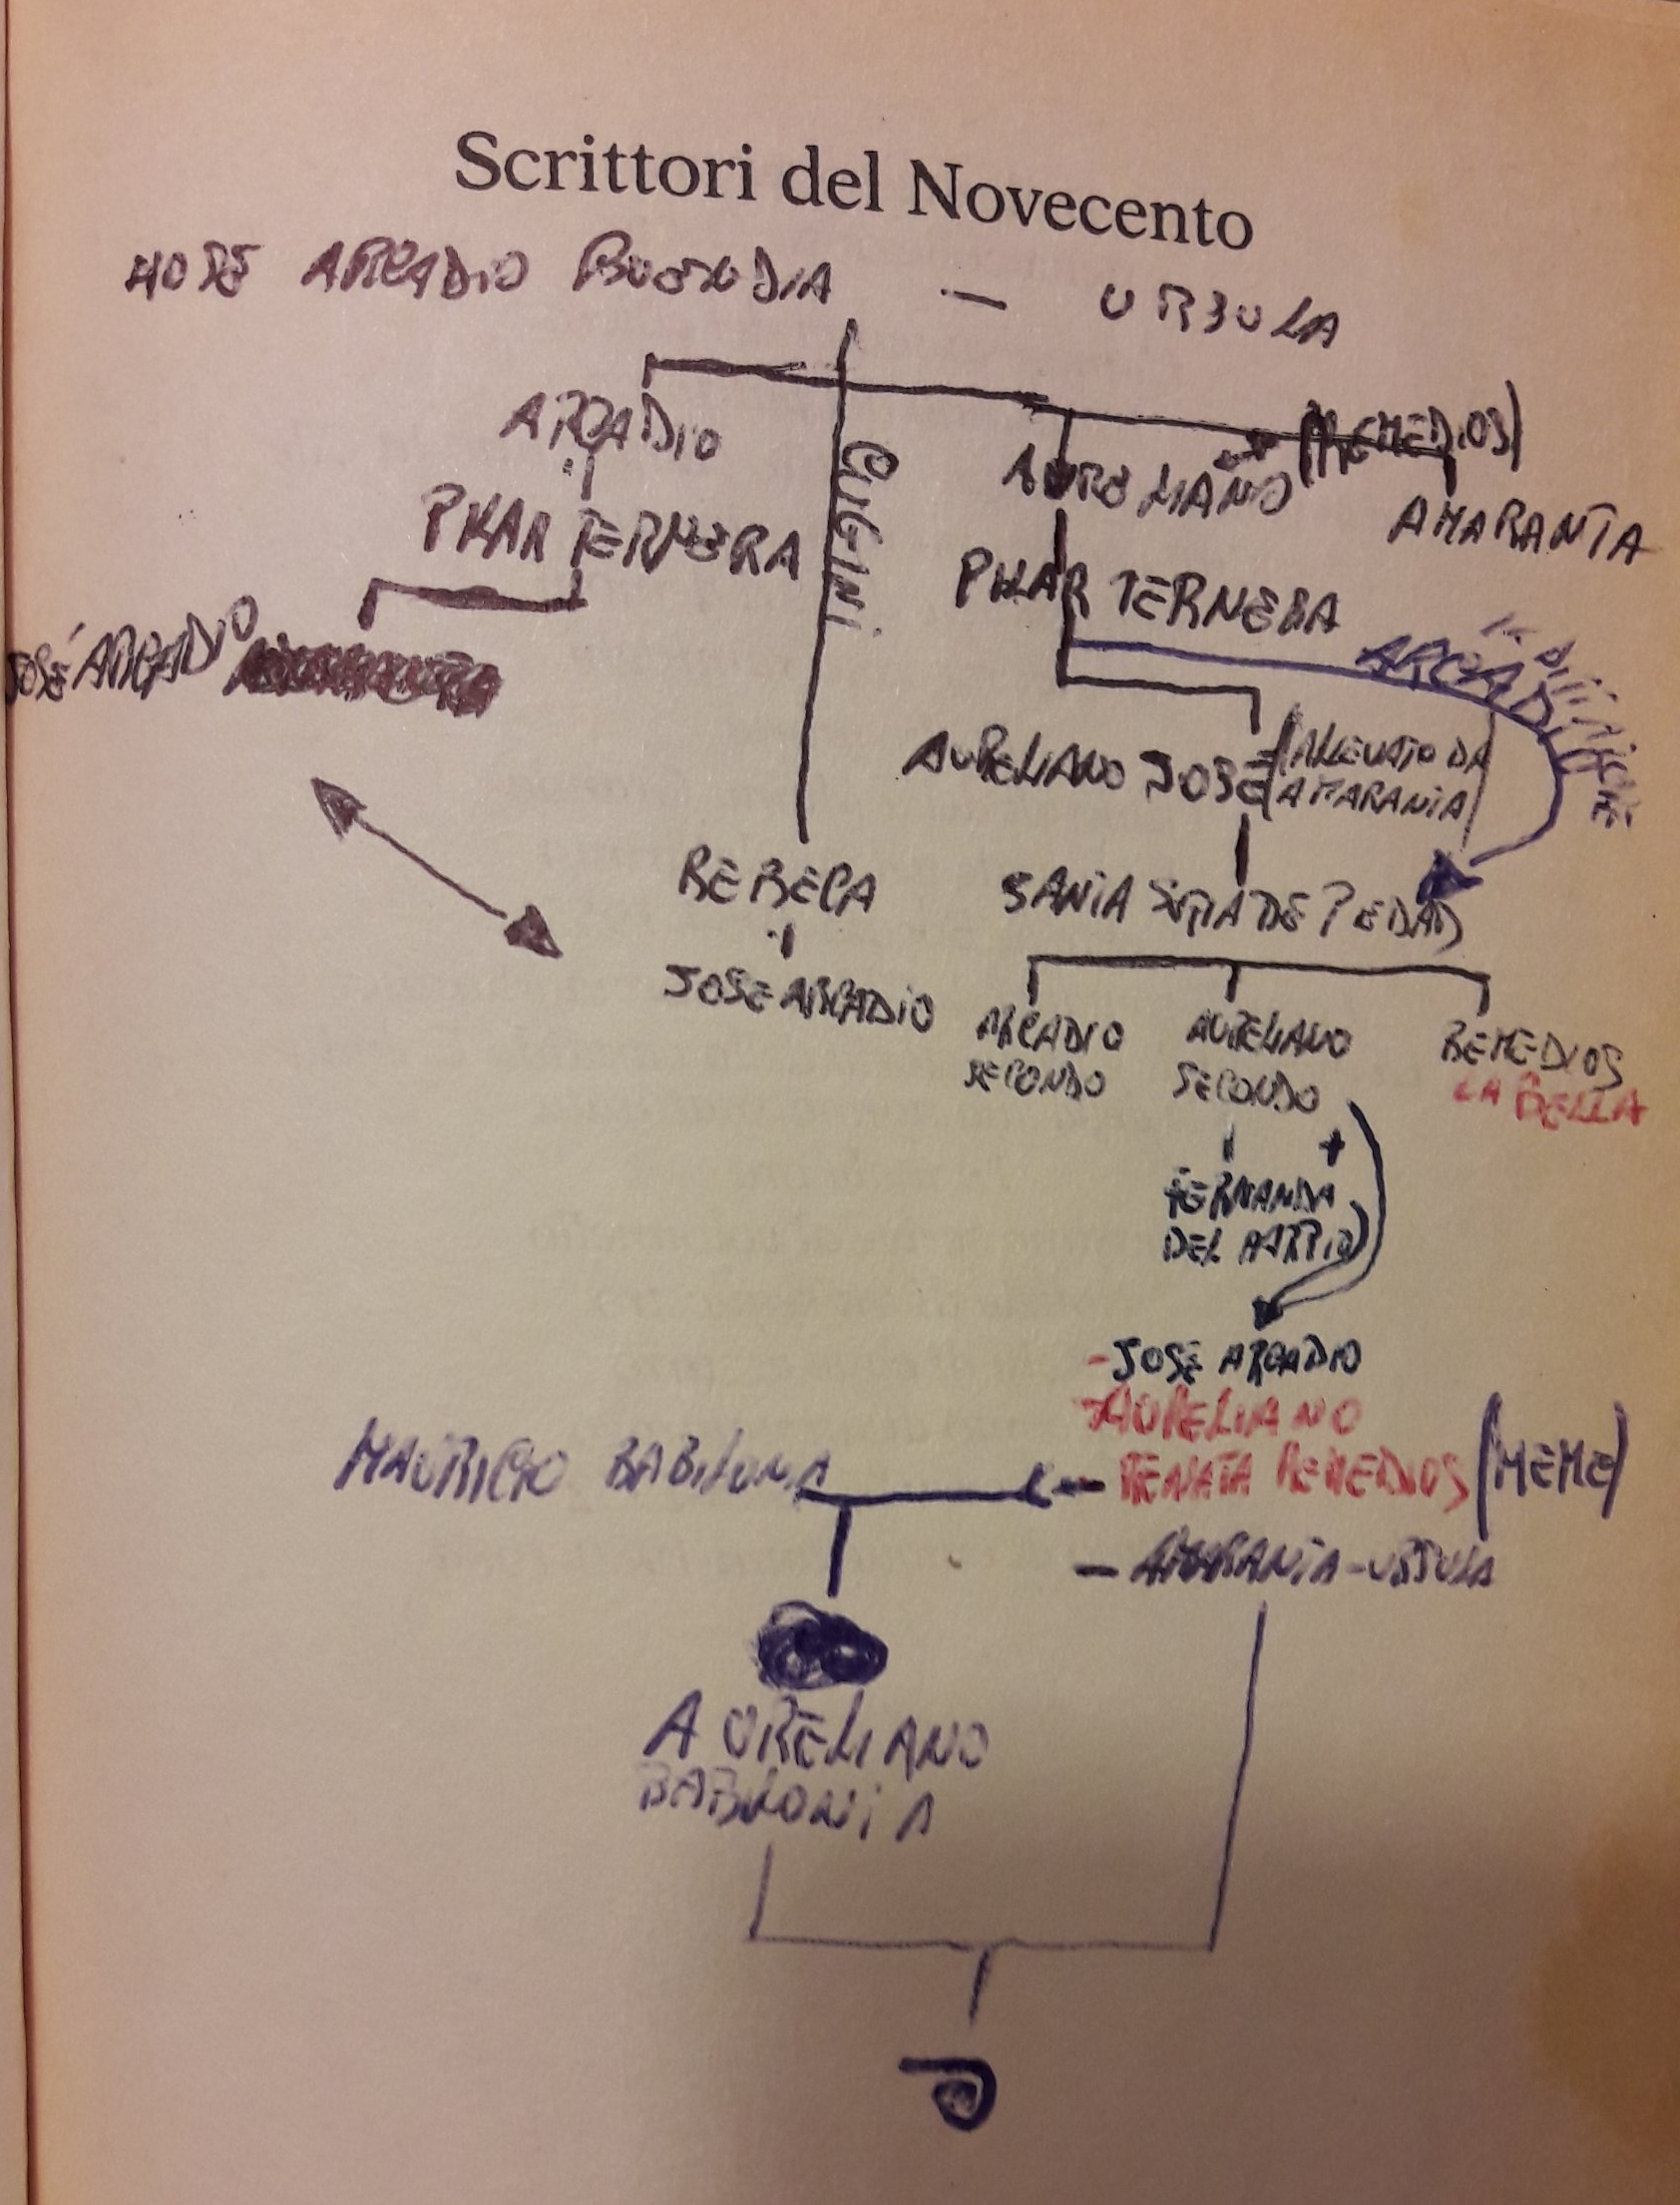 Scrittori del Novecento
HOSÉ ARCADIO BUENDIA — URSULA
ARCADIO
CUGINI
AURELIANO (REMEDIOS)
AMARANTA
PILAR TERNERA
PILAR TERNERA
JOSÉ ARCADIO
ARCADIO
AURELIANO JOSÉ (ALLEVATO DA
AMARANTA)
REBECA
SANTA SOFIA DE PEDAD
JOSE ARCADIO
ARCADIO
SECONDO
AURELIANO
SECONDO
REMEDIOS
LA BELLA
+
FERNANDA
DEL CARPIO
- JOSE ARCADIO
- AURELIANO
- RENATA REMEDIOS (MEME)
MAURICIO BABILONIA
— AMARANTA-URSULA
AURELIANO
BABILONIA